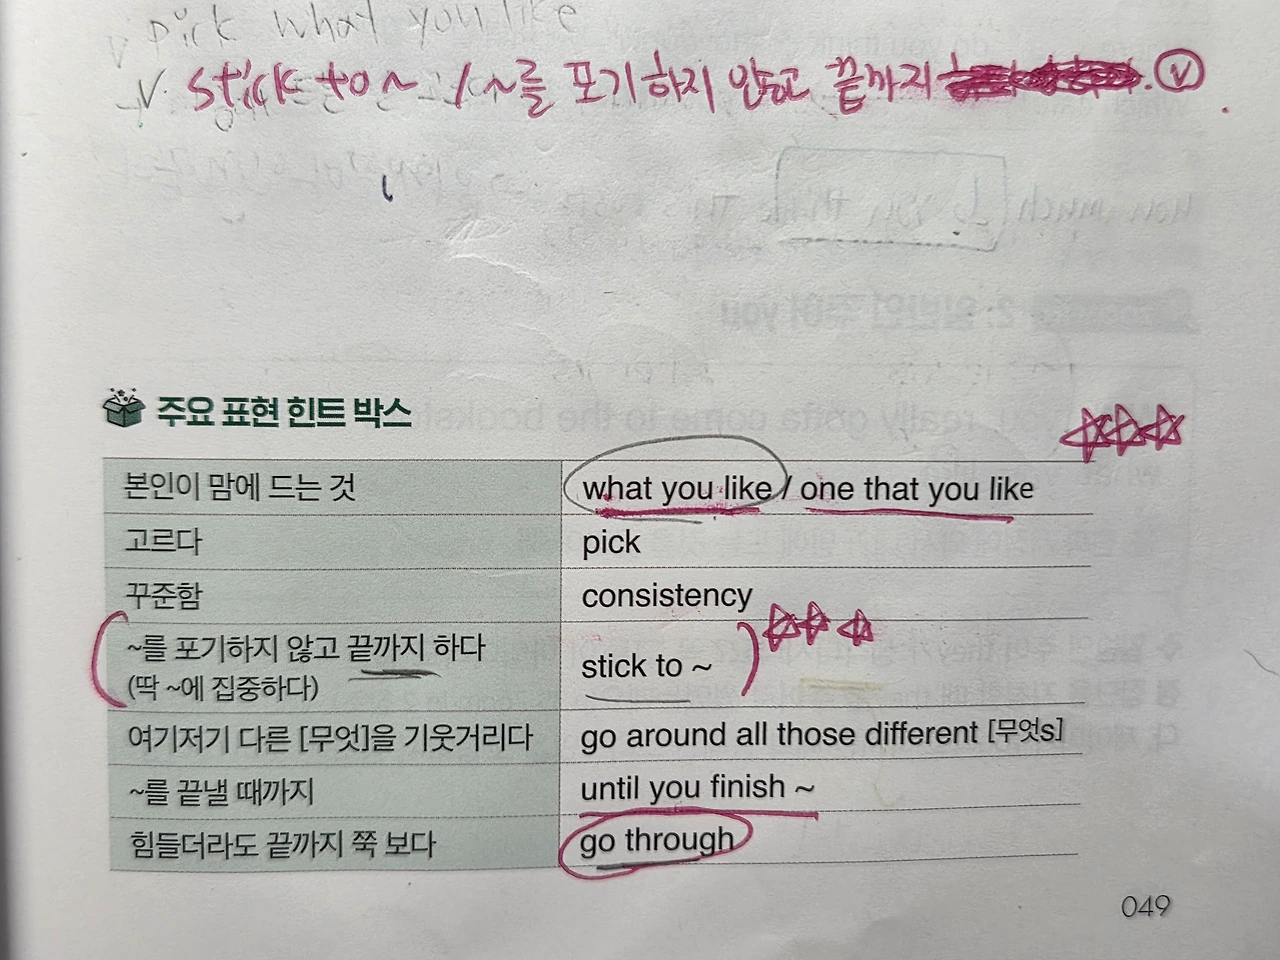 v pick what you like
v. stick to ~ / ~를 포기하지 않고 끝까지 . v
주요 표현 힌트 박스
본인이 맘에 드는 것 what you like / one that you like
고르다 pick
꾸준함 consistency
~를 포기하지 않고 끝까지 하다 stick to ~
(딱 ~에 집중하다)
여기저기 다른 [무엇]을 기웃거리다 go around all those different [무엇s]
~를 끝낼 때까지 until you finish ~
힘들더라도 끝까지 쭉 보다 go through
049